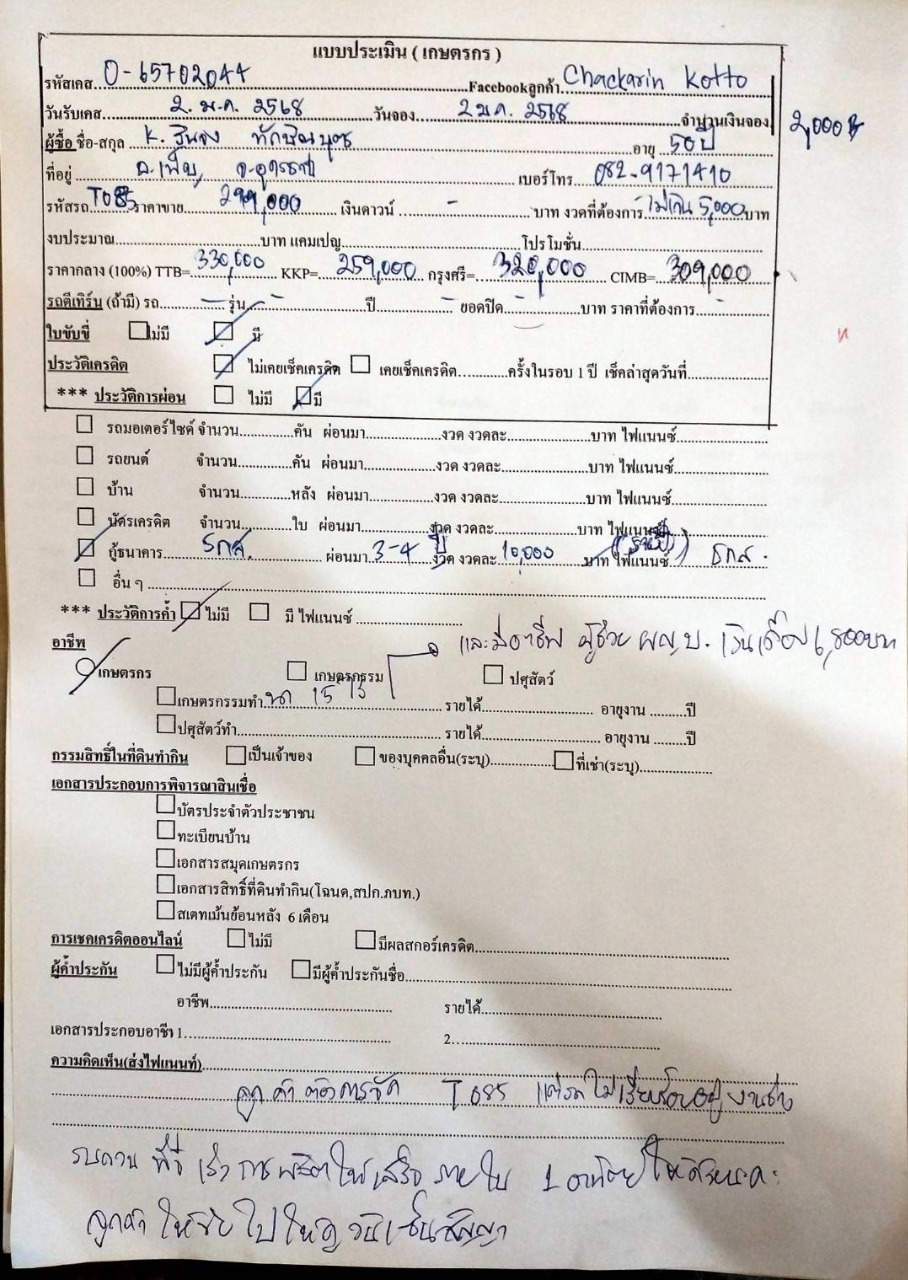 แบบประเมิน ( เกษตรกร )
รหัสเคส 0-65702044 Facebookลูกค้า Chackarin Kotto
วันรับเคส 2. ม.ค. 2568 วันจอง 2 ม.ค. 2568 จำนวนเงินจอง 2,000 ฿
ผู้ซื้อ ชื่อ-สกุล K. อายุ 50 ปี
ที่อยู่ อ.เพ็ญ จ.อุดรธานี เบอร์โทร 082-9171410
รหัสรถ T085 ราคาขาย 299,000 เงินดาวน์ - บาท งวดที่ต้องการ ไม่เกิน 5,000 บาท
งบประมาณ บาท แคมเปญ โปรโมชั่น
ราคากลาง (100%) TTB= 330,000 KKP= 259,000 กรุงศรี= 320,000 CIMB= 309,000
รถตีเทิร์น (ถ้ามี) รถ - รุ่น - ปี - ยอดปิด - บาท ราคาที่ต้องการ -
ใบขับขี่ ไม่มี มี
ประวัติเครดิต ไม่เคยเช็คเครดิต เคยเช็คเครดิต ครั้งในรอบ 1 ปี เช็คล่าสุดวันที่
*** ประวัติการผ่อน ไม่มี มี
รถมอเตอร์ไซด์ จำนวน คัน ผ่อนมา งวด งวดละ บาท ไฟแนนซ์
รถยนต์ จำนวน คัน ผ่อนมา งวด งวดละ บาท ไฟแนนซ์
บ้าน จำนวน หลัง ผ่อนมา งวด งวดละ บาท ไฟแนนซ์
บัตรเครดิต จำนวน ใบ ผ่อนมา งวด งวดละ บาท ไฟแนนซ์
กู้ธนาคาร ธกส. ผ่อนมา 3-4 ปี งวด งวดละ 10,000 บาท (รายปี) ไฟแนนซ์ ธกส.
อื่น ๆ
*** ประวัติการค้ำ ไม่มี มี ไฟแนนซ์
และมีอาชีพ ผู้ช่วย ผญ.บ. เงินเดือน 6,800บาท
อาชีพ
เกษตรกร เกษตรกรรม ปศุสัตว์
เกษตรกรรมทำ นา 15 ไร่ รายได้ อายุงาน ปี
ปศุสัตว์ทำ รายได้ อายุงาน ปี
กรรมสิทธิ์ในที่ดินทำกิน เป็นเจ้าของ ของบุคคลอื่น(ระบุ) ที่เช่า(ระบุ)
เอกสารประกอบการพิจารณาสินเชื่อ
บัตรประจำตัวประชาชน
ทะเบียนบ้าน
เอกสารสมุดเกษตรกร
เอกสารสิทธิ์ที่ดินทำกิน(โฉนด,สปก.ภบท.)
สเตทเม้นย้อนหลัง 6 เดือน
การเชคเครดิตออนไลน์ ไม่มี มีผลสกอร์เครดิต
ผู้ค้ำประกัน ไม่มีผู้ค้ำประกัน มีผู้ค้ำประกันชื่อ
อาชีพ รายได้
เอกสารประกอบอาชีพ 1. 2.
ความคิดเห็น(ส่งไฟแนนท์)
ลูกค้าต้องการจัด T085 แต่รถไม่เรียบร้อยอยู่ งานช่าง
รบกวน พี่ ๆ เร่ง ให้เสร็จ ภายใน 1 อาทิตย์ ให้ด้วยนะคะ
ลูกค้า ให้ วันเซ็นสัญญา